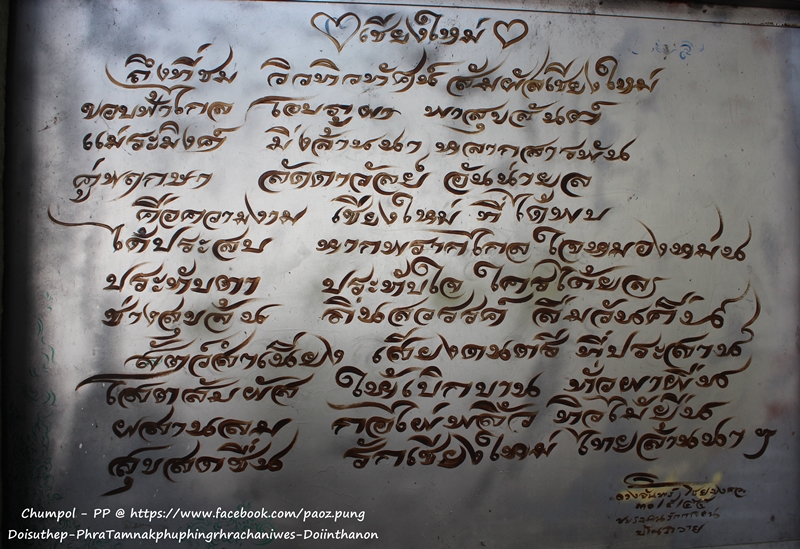 เชียงใหม่
ถึงที่ชม วิวทิวทัศน์ สัมผัสเชียงใหม่
ขอบฟ้าไกล โอบภูผา พาสุขสันต์
แม่ระมิงค์ มิ่งล้านนา หลากสารพัน
คู่พฤกษา ลัดดาวัลย์ อันน่ายล
คือความงาม เชียงใหม่ ที่ได้พบ
ได้ประสบ หากพรากไกล ใจหมองหม่น
ประทับตา ประทับใจ ใคร่ได้ยล
ช่างสุขล้น ถิ่นสวรรค์ ลืมวันคืน
สัตว์สำเนียง เสียงดนตรี ที่ประสาน
โสตสัมผัส ให้เบิกบาน ทั่วผาผืน
ผสานลม กอไผ่พลิ้ว ทิวไม้ยืน
สุขสดชื่น รักเชียงใหม่ ไทยล้านนาฯ
Chumpol - PP @ https://www.facebook.com/paoz.pung
Doisuthep-PhraTamnakphuphingrhrachaniwes-Doiinthanon